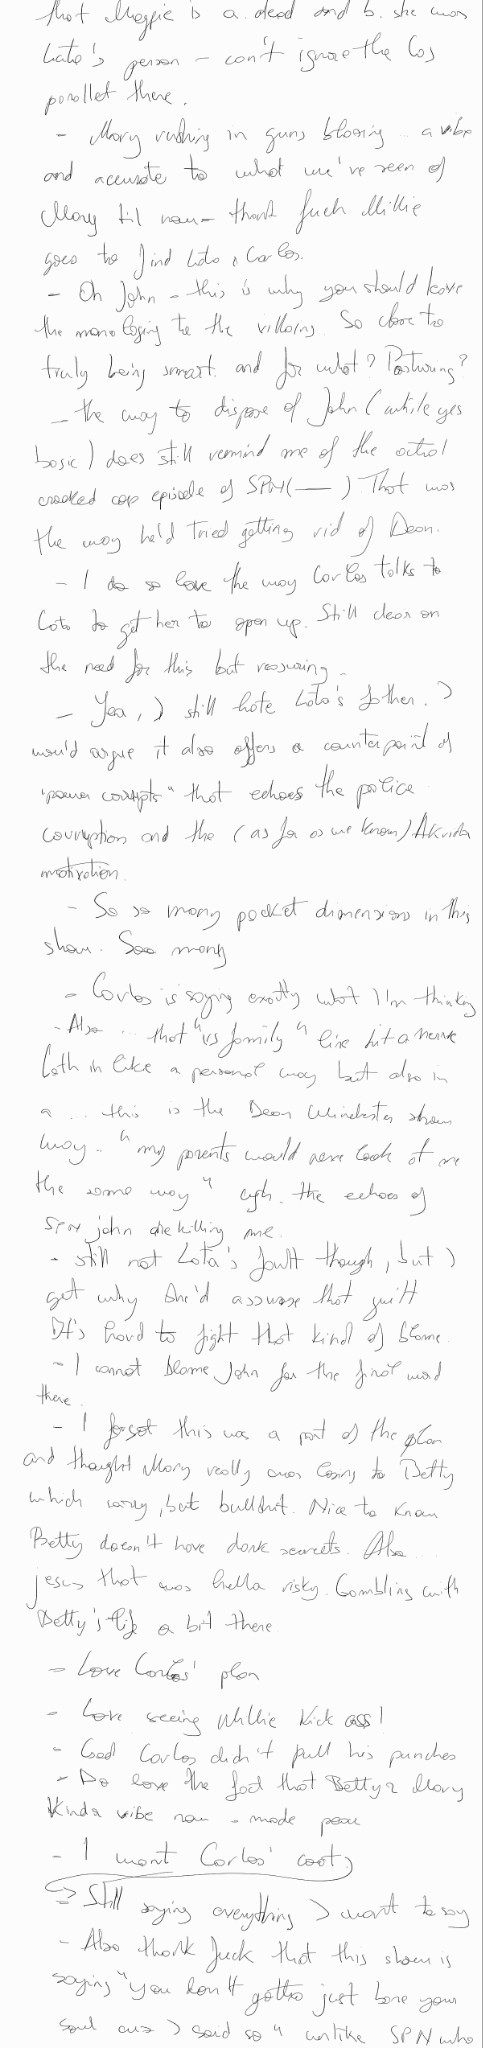 that Maggie is a. dead and b. she was
Lata's person - can't ignore the Cas
parallel there.
- Mary rushing in guns blazing .. a vibe
and accurate to what we've seen of
Mary til now - thank fuck Millie
goes to find Lata & Carlos.
- Oh John - this is why you should leave
the monologing to the villains. So close to
truly being smart. and for what? Posturing?
- the way to dispose of John (while yes
basic) does still remind me of the actual
crooked cop episode of SPN (—) That was
the way he'd tried getting rid of Dean.
- I do so love the way Carlos talks to
Lata to get her to open up. Still clear on
the need for this but reassuring -
- Yea, I still hate Lata's father. I
would argue it also offers a counterpoint of
"power corrupts" that echoes the police
corruption and the (as far as we know) Akrida
motivation.
- So so many pocket dimensions in this
show. Soo many
- Carlos is saying exactly what I'm thinking
- Also ... that "vs family" line hit a nerve
both in like a personal way but also in
a ... this is the Dean Winchester show
way.. "my parents would never look at me
the same way" ugh. the echoes of
SPN John are killing me.
- still not Lata's fault though, but I
get why she'd assume that guilt
It's hard to fight that kind of blame.
- I cannot blame John for the final word
there.
- I forgot this was a part of the plan
and thought Mary really was losing to Betty
which sorry, but bullshit. Nice to know
Betty doesn't have dark secrets. Also ...
jesus that was hella risky. Gambling with
Betty's life a bit there
- Love Carlos' plan
- Love seeing Millie kick ass!
- Good Carlos didn't pull his punches
- Do love the fact that Betty & Mary
kinda vibe now - made peace
- I want Carlos' coat.
- Still saying everything I want to say
- Also thank fuck that this show is
saying "you don't gotta just bare your
soul cuz I said so" unlike SPN who